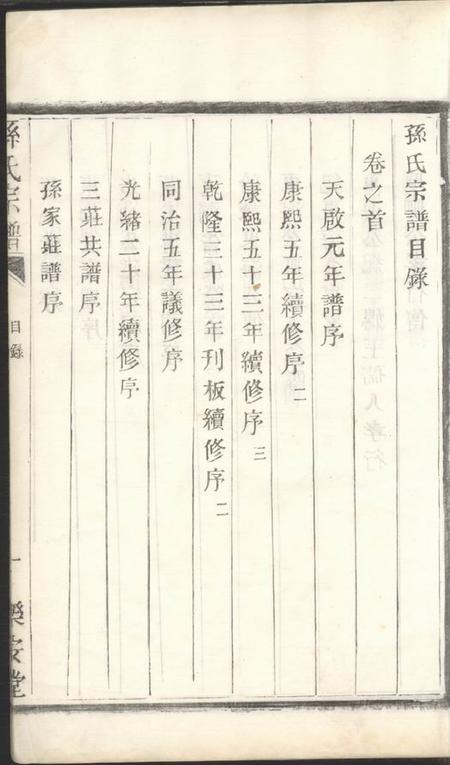 孫氏宗譜目錄
卷之首
天啟元年譜序
康熙五年續修序 二
康熙五十三年續修序 三
乾隆三十三年刊板續修序 二
同治五年議修序
光緒二十年續修序
三莊共譜序
孫家莊譜序
孫氏宗譜
目錄
一
樂安堂